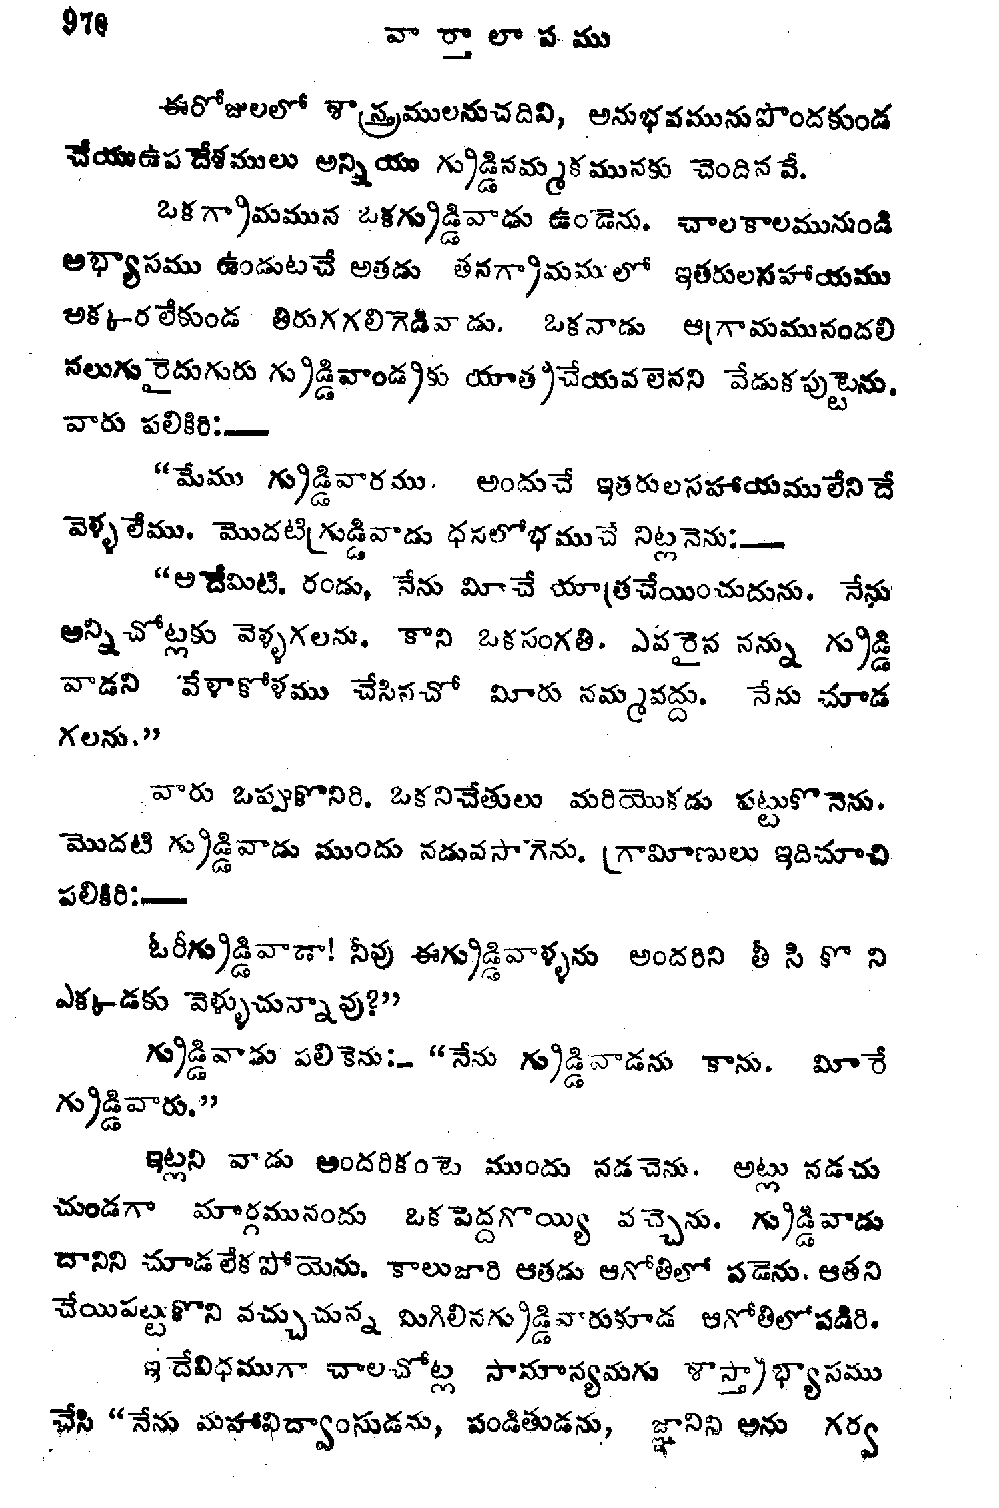 976
వార్తాలాపము
ఈరోజులలో శాస్త్రములనుచదివి, అనుభవమునుపొందకుండ
చేయుఉపదేశములు అన్నియు గ్రుడ్డినమ్మకమునకు చెందినవే.
ఒకగ్రామమున ఒకగ్రుడ్డివాడు ఉండెను. చాలకాలమునుండి
అభ్యాసము ఉండుటచే అతడు తనగ్రామములో ఇతరులసహాయము
అక్కరలేకుండ తిరుగగలిగెడివాడు. ఒకనాడు ఆగ్రామమునందలి
నలుగురైదుగురు గ్రుడ్డివాండ్రకు యాత్రచేయవలెనని వేడుకపుట్టెను.
వారు పలికిరి:—
“మేము గ్రుడ్డివారము. అందుచే ఇతరులసహాయములేనిదే
వెళ్ళలేము. మొదటిగ్రుడ్డివాడు ధనలోభముచే నిట్లనెను:—
“అదేమిటి. రండు, నేను మీచే యాత్రచేయించుదును. నేను
అన్నిచోట్లకు వెళ్ళగలను. కాని ఒకసంగతి. ఎవరైన నన్ను గ్రుడ్డి
వాడని వేళాకోళము చేసినచో మీరు నమ్మవద్దు. నేను చూడ
గలను.”
వారు ఒప్పుకొనిరి. ఒకనిచేతులు మరియొకడు పట్టుకొనెను.
మొదటి గ్రుడ్డివాడు ముందు నడువసాగెను. గ్రామీణులు ఇదిచూచి
పలికిరి:—
ఓరీగ్రుడ్డివాడా! నీవు ఈగ్రుడ్డివాళ్ళను అందరిని తీసికొని
ఎక్కడకు వెళ్ళుచున్నావు?”
గ్రుడ్డివాడు పలికెను:– “నేను గ్రుడ్డివాడను కాను. మీరే
గ్రుడ్డివారు.”
ఇట్లని వాడు అందరికంటె ముందు నడచెను. అట్లు నడచు
చుండగా మార్గమునందు ఒకపెద్దగొయ్యి వచ్చెను. గ్రుడ్డివాడు
దానిని చూడలేకపోయెను. కాలుజారి ఆతడు ఆగోతిలో పడెను. ఆతని
చేయిపట్టుకొని వచ్చుచున్న మిగిలినగ్రుడ్డివారుకూడ ఆగోతిలోపడిరి.
ఇదేవిధముగా చాలచోట్ల సామాన్యమగు శాస్త్రాభ్యాసము
చేసి “నేను మహావిద్వాంసుడను, పండితుడను, జ్ఞానిని అను గర్వ